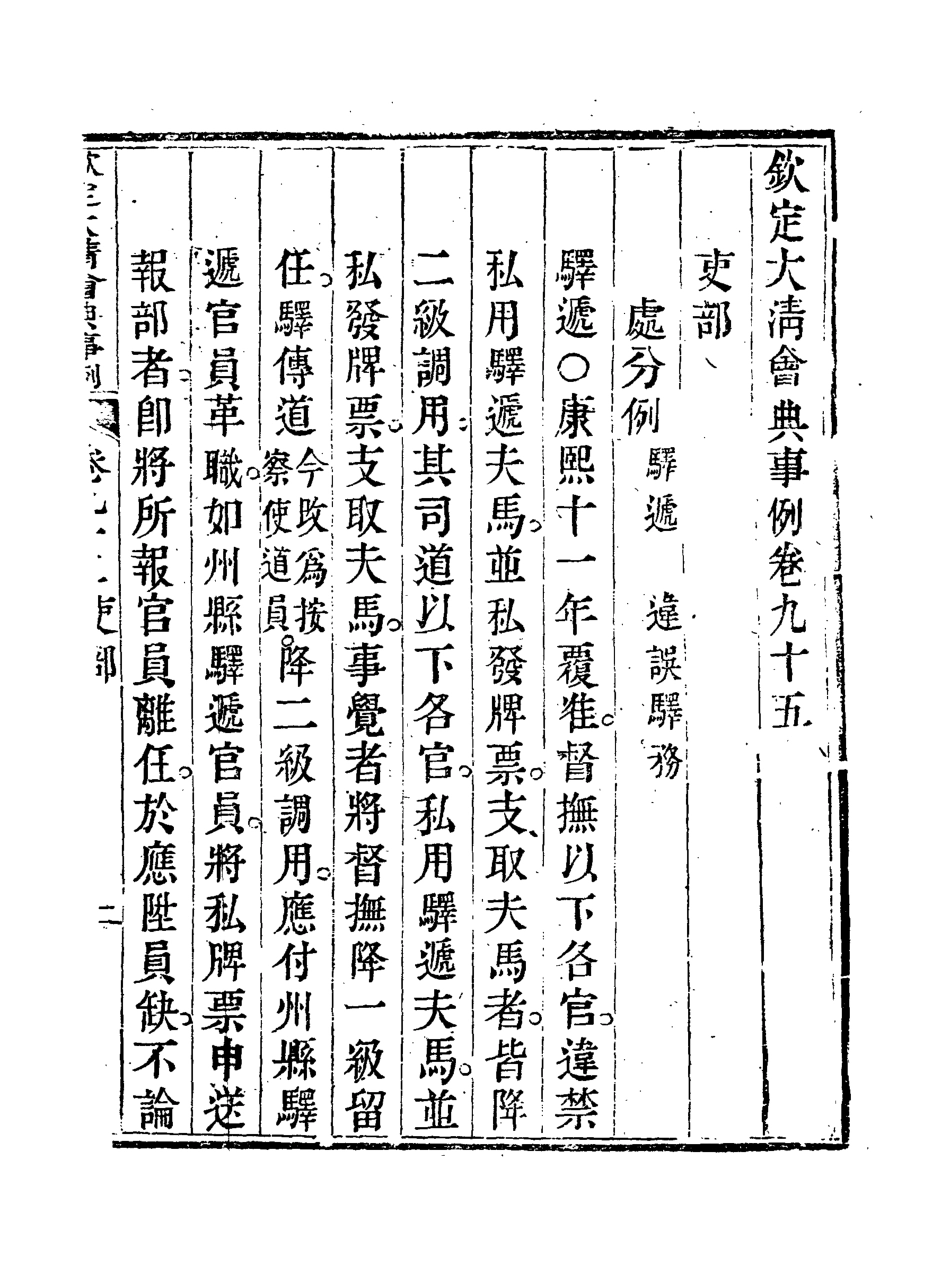 欽定大清會典事例卷九十五
吏部
處分例 驛遞 違誤驛務
驛遞○康熙十一年覆准。督撫以下各官。違禁
私用驛遞夫馬。並私發牌票。支取夫馬者。皆降
二級調用。其司道以下各官。私用驛遞夫馬。並
私發牌票。支取夫馬。事覺者將督撫降一級留
任。驛傳道今改為按察使道員。降二級調用。應付州縣驛
遞官員革職。如州縣驛遞官員。將私牌票申送
報部者。即將所報官員離任。於應陞員缺。不論
欽定大清會典事例 卷九十五 吏部 二